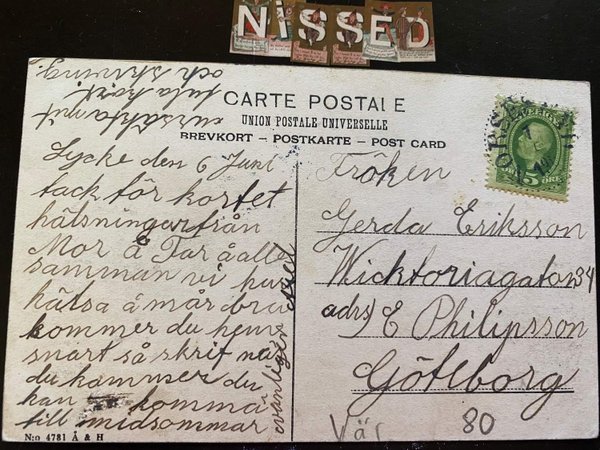 NISSED
CARTE POSTALE
UNION POSTALE UNIVERSELLE
BREVKORT – POSTKARTE – POST CARD
Lycke den 6 Juni
tack för kortet
hälsningar från
Mor å Far å alle
samman vi har
hälsa å mår bra
kommer du hem
snart så skrif när
du kommer du
kan kommа
till midsommar
vänligen
ursäkta mit
fula kort
och skrivning
Fröken
Gerda Eriksson
Wicktoriagatan 34
adrs) E Philipsson
Göteborg
5 ÖRE
N:o 4781 Å & H
Vär
80